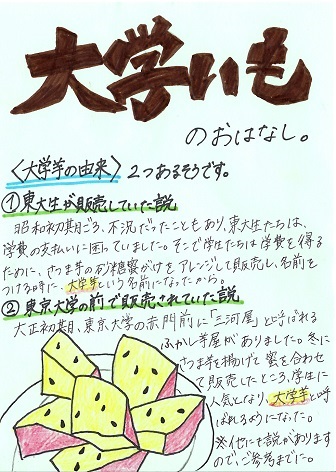 大学いも
のおはなし。
〈大学芋の由来〉 2つあるそうです。
①東大生が販売していた説
昭和初期ごろ、不況だったこともあり、東大生たちは、
学費の支払いに困っていました。そこで学生たちは学費を得る
ために、さつま芋の砂糖蜜がけをアレンジして販売し、名前を
つける時に、大学芋という名前になったから。
②東京大学の前で販売されていた説
大正初期、東京大学の赤門前に「三河屋」と呼ばれる
ふかし芋屋がありました。冬に
さつま芋を揚げと蜜を合わせ
て販売したところ、学生に
人気となり、大学芋と呼
ばれるようになった。
※他にも説があります
ので、ご参考までに。